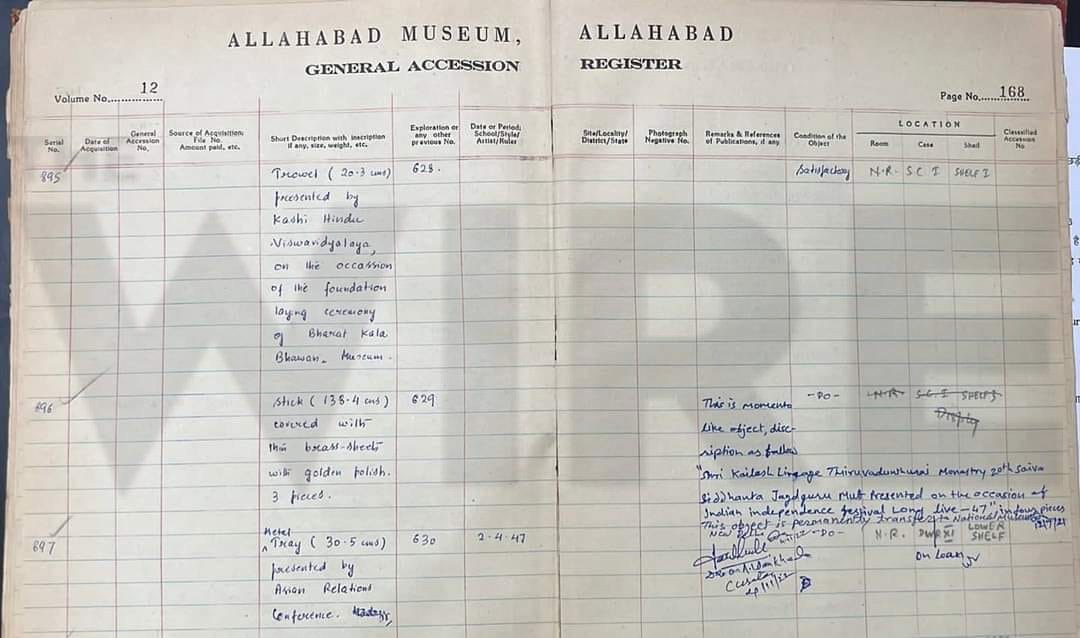 ALLAHABAD MUSEUM, ALLAHABAD
GENERAL ACCESSION REGISTER
Volume No. 12
Page No. 168
Serial No.
Date of Acquisition
General Accession No.
Source of Acquisition: File No. Amount paid, etc.
Short Description with inscription if any, size, weight, etc.
Exploration or any other previous No.
Date or Period; School/Style/ Artist/Ruler
Site/Locality/ District/State
Photograph Negative No.
Remarks & References of Publications, if any
Condition of the Object
LOCATION
Room Case Shelf
Classified Accession No
895 Trowel (20.3 cms) 628. Satisfactory N.R. S.C I SHELF I
presented by
Kashi Hindu
Viswavidyalaya,
on the occassion
of the foundation
laying ceremony
of Bharat Kala
Bhawan Museum.
896 Stick (138.4 cms) 629 -DO- N.R S.C I SHELF I
covered with
thin brass-sheets
with golden polish.
3 pieces.
Display
This is momento
like object, disc-
ription as follow
"Shri Kailash Lingage Thiruvadunthurai Monastry 20th Saiva
Siddhanta Jagdguru Mutt Presented on the occasion of
Indian independence festival Long live -47" in four pieces
This object is permanently transfer to National Museum
New Delhi
897 Metal
Tray (30.5 cms) 630 2-4-47 -DO- N.R. LOWER
SHELF
presented by
Asian Relations
Conference.
on Loan
WIRE